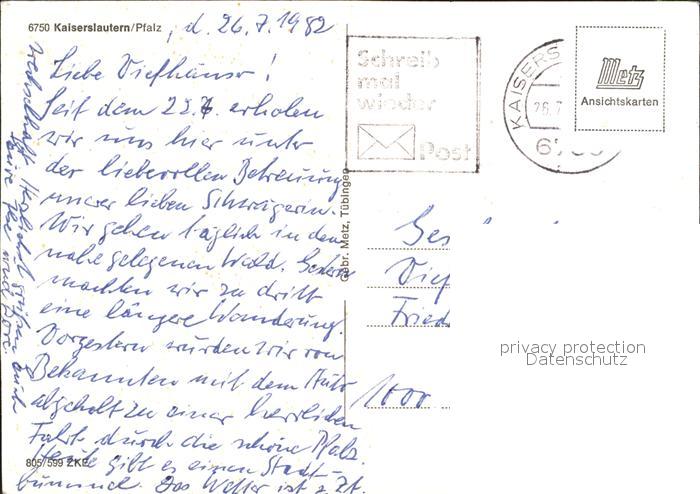 6750 Kaiserslautern/Pfalz , d. 26.7.1982
Liebe Viefhäuser!
Seit dem 22.7. erholen
wir uns hier unter
der liebevollen Betreuung
unserer lieben Schwägerin.
Wir gehen täglich in den
nahe gelegenen Wald. Gestern
machten wir zu dritt
eine längere Wanderung.
Vorgestern wurden wir von
Bekannten mit dem Auto
abgeholt zu einer herrlichen
Fahrt durch die schöne Pfalz.
Heute gibt es einen Stadt-
bummel. Das Wetter ist z. Zt.
805/599 ZKE
Herzlichst grüßen euch
Gebr. Metz, Tübingen
Schreib
mal
wieder
Post
KAISERS
26.7
Metz
Ansichtskarten
Ges
Vief
Fried
1000
privacy protection
Datenschutz